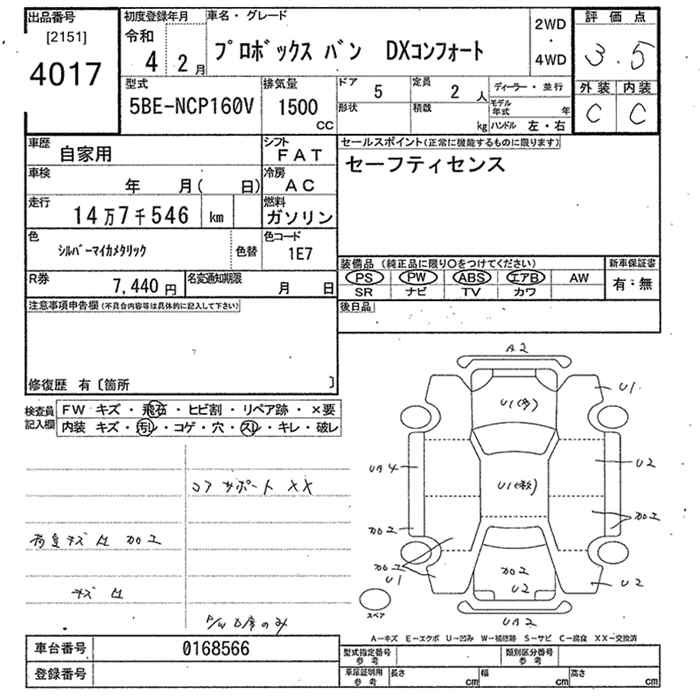 出品番号
[2151]
4017
初度登録年月
令和
4 2月
車名・グレード
プロボックス バン DXコンフォート
2WD
・
4WD
評価点
3.5
外装 内装
C C
型式
5BE-NCP160V
排気量
1500
CC
ドア 5
定員 2 人
ディーラー・並行
形状
積載 kg
モデル年式 年
ハンドル 左・右
車歴
自家用
シフト
FAT
車検
年 月( 日)
冷房
AC
走行
14万7千546 km
燃料
ガソリン
色
シルバーマイカメタリック
色替
色コード
1E7
R券
7,440円
名変通知期限
月 日
セールスポイント(正常に機能するものに限ります)
セーフティセンス
装備品 (純正品に限り○をつけてください)
PS PW ABS エアB AW
SR ナビ TV カワ
新車保証書
有・無
後日品
注意事項申告欄(不具合内容等は具体的に記入して下さい)
修復歴 有〔箇所 〕
検査員記入欄
FW キズ・飛石・ヒビ割・リペア跡・×要
内装 キズ・汚レ・コゲ・穴・スレ・キレ・破レ
コアサポート XX
加2
A2
U1
U1(多)
U2
U1
加2
加2
U2
U2
スペア
A-キズ E-エクボ U-凹み W-補修跡 S-サビ C-腐食 XX-交換済
車台番号
0168566
登録番号
型式指定番号
参考
類別区分番号
参考
車庫証明用
参考
長さ cm
幅 cm
高さ cm